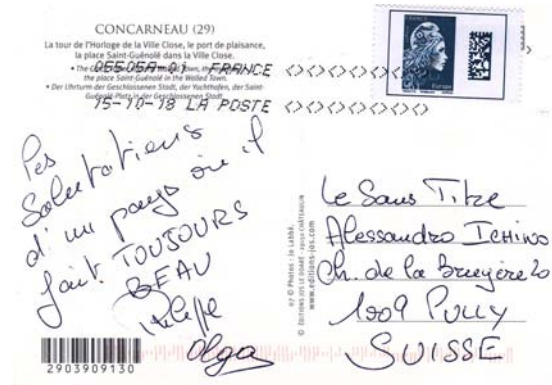 CONCARNEAU (29)
La tour de l'Horloge de la Ville Close, le port de plaisance,
la place Saint-Guénolé dans la Ville Close.
the place Saint Guénolé in the Walled Town.
• Der Uhrturm der Geschlossenen Stadt, der Yachthafen, der Saint-
Guénolé-Platz in der Geschlossenen Stadt.
05505A-01 FRANCE
15-10-18 LA POSTE
FRANCE
Europe
Les
Salutations
d'un pays où il
fait TOUJOURS
BEAU
Olga
2903909130
07 © Photos : Jo Labbé.
© ÉDITIONS JOS LE DOARÉ - 29150 CHÂTEAULIN
www.editions-jos.com
Le Sans Titre
Alessandro Ichino
Ch. de la Bruyère 20
1009 PULLY
SUISSE